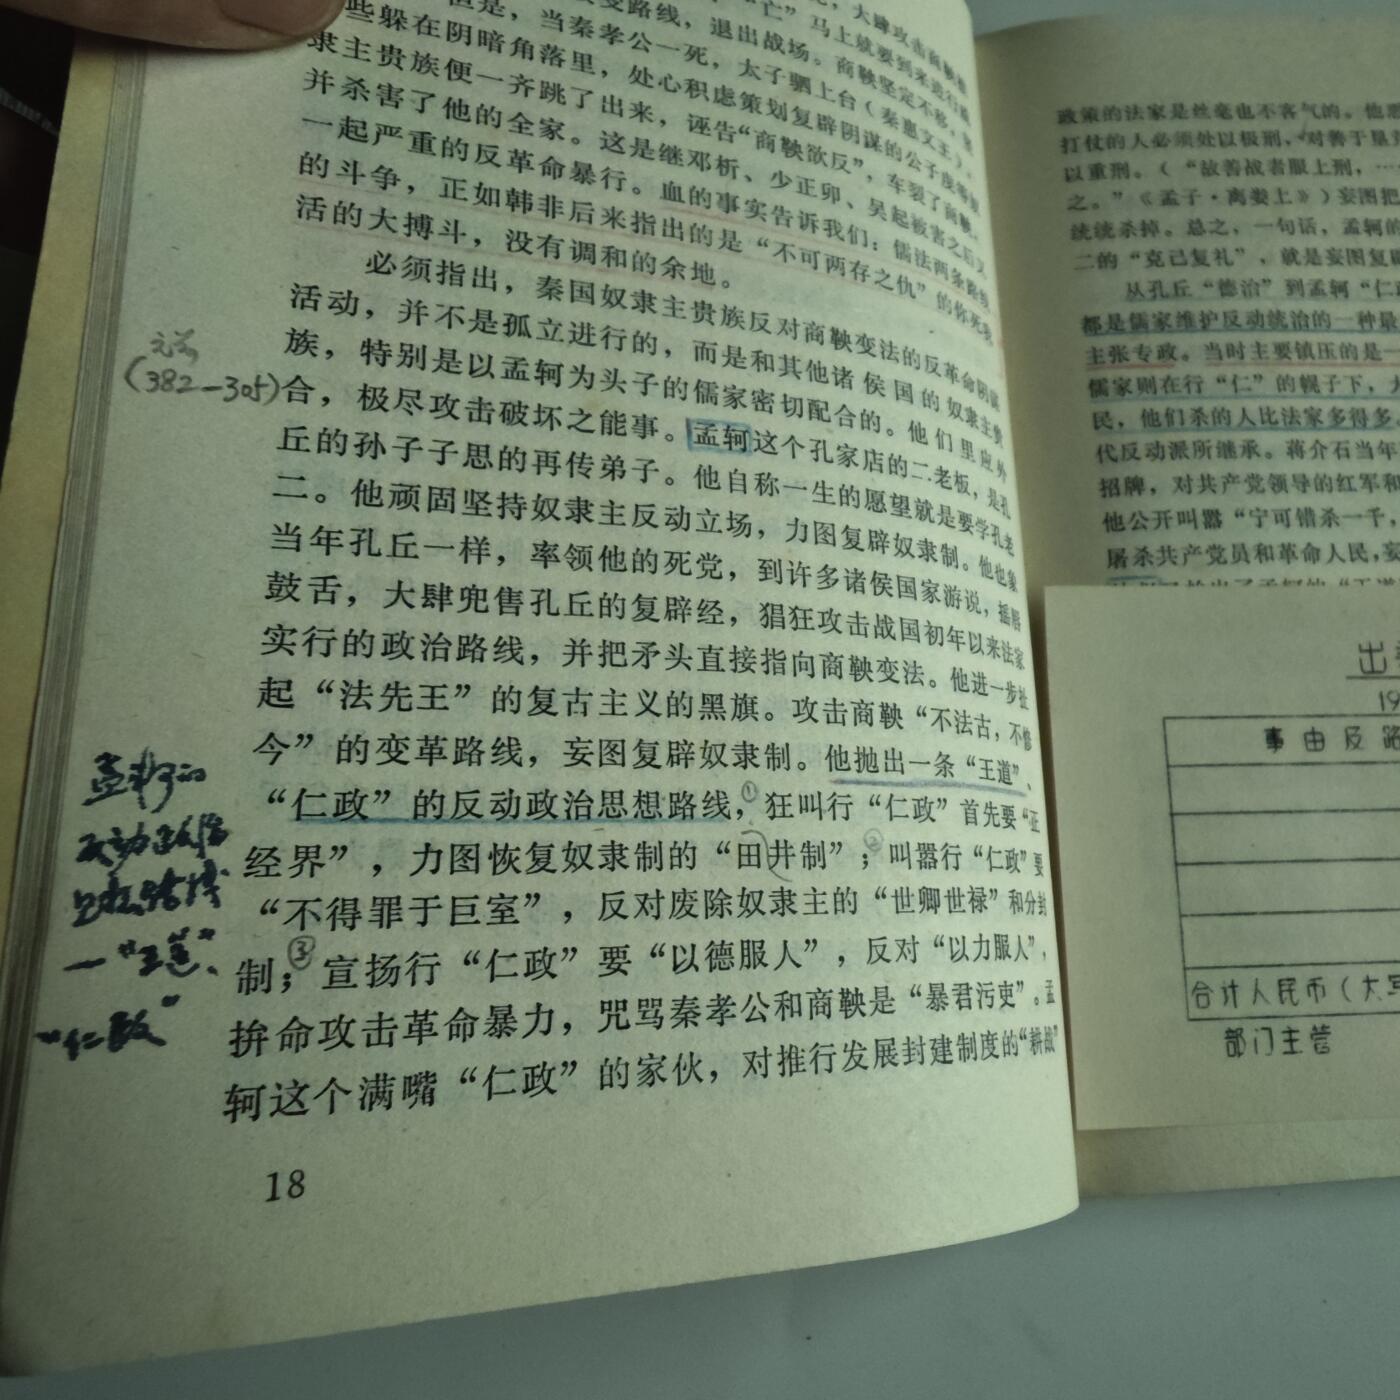 大肆攻击商鞅
变路线，退出战场。商鞅坚定不移，
但是，当秦孝公一死，太子驷上台（秦惠文王）。
些躲在阴暗角落里，处心积虑策划复辟阴谋的公子虔等奴
隶主贵族便一齐跳了出来，诬告“商鞅欲反”，车裂了商鞅，
并杀害了他的全家。这是继邓析、少正卯、吴起被害之后又
一起严重的反革命暴行。血的事实告诉我们：儒法两条路线
的斗争，正如韩非后来指出的是“不可两存之仇”的你死我
活的大搏斗，没有调和的余地。
必须指出，秦国奴隶主贵族反对商鞅变法的反革命阴谋
活动，并不是孤立进行的，而是和其他诸侯国的奴隶主贵
族，特别是以孟轲为头子的儒家密切配合的。他们里应外
合，极尽攻击破坏之能事。孟轲这个孔家店的二老板，是孔
丘的孙子子思的再传弟子。他自称一生的愿望就是要学孔老
二。他顽固坚持奴隶主反动立场，力图复辟奴隶制。他也象
当年孔丘一样，率领他的死党，到许多诸侯国家游说，摇唇
鼓舌，大肆兜售孔丘的复辟经，猖狂攻击战国初年以来法家
实行的政治路线，并把矛头直接指向商鞅变法。他进一步扯
起“法先王”的复古主义的黑旗。攻击商鞅“不法古，不修
今”的变革路线，妄图复辟奴隶制。他抛出一条“王道”、
“仁政”的反动政治思想路线，①狂叫行“仁政”首先要“正
经界”，力图恢复奴隶制的“田井制”；②叫嚣行“仁政”要
“不得罪于巨室”，反对废除奴隶主的“世卿世禄”和分封
制；③宣扬行“仁政”要“以德服人”，反对“以力服人”，
拚命攻击革命暴力，咒骂秦孝公和商鞅是“暴君污吏”。孟
轲这个满嘴“仁政”的家伙，对推行发展封建制度的“耕战”
18
元前
（382—305）
孟轲的
反动政治
思想路线
—“王道”、
“仁政”
政策的法家是丝毫也不客气的。他
打仗的人必须处以极刑，对善于
以重刑。（“故善战者服上刑，…
之。”《孟子·离娄上》）妄图把
统统杀掉。总之，一句话，孟轲的
二的“克己复礼”，就是妄图复辟
从孔丘“德治”到孟轲“仁政
都是儒家维护反动统治的一种
主张专政。当时主要镇压的是一
儒家则在行“仁”的幌子下，大
民，他们杀的人比法家多得多。
代反动派所继承。蒋介石当年
招牌，对共产党领导的红军和
他公开叫嚣“宁可错杀一千，
屠杀共产党员和革命人民，妄
出
19
事由及路
合计人民币（大写
部门主管